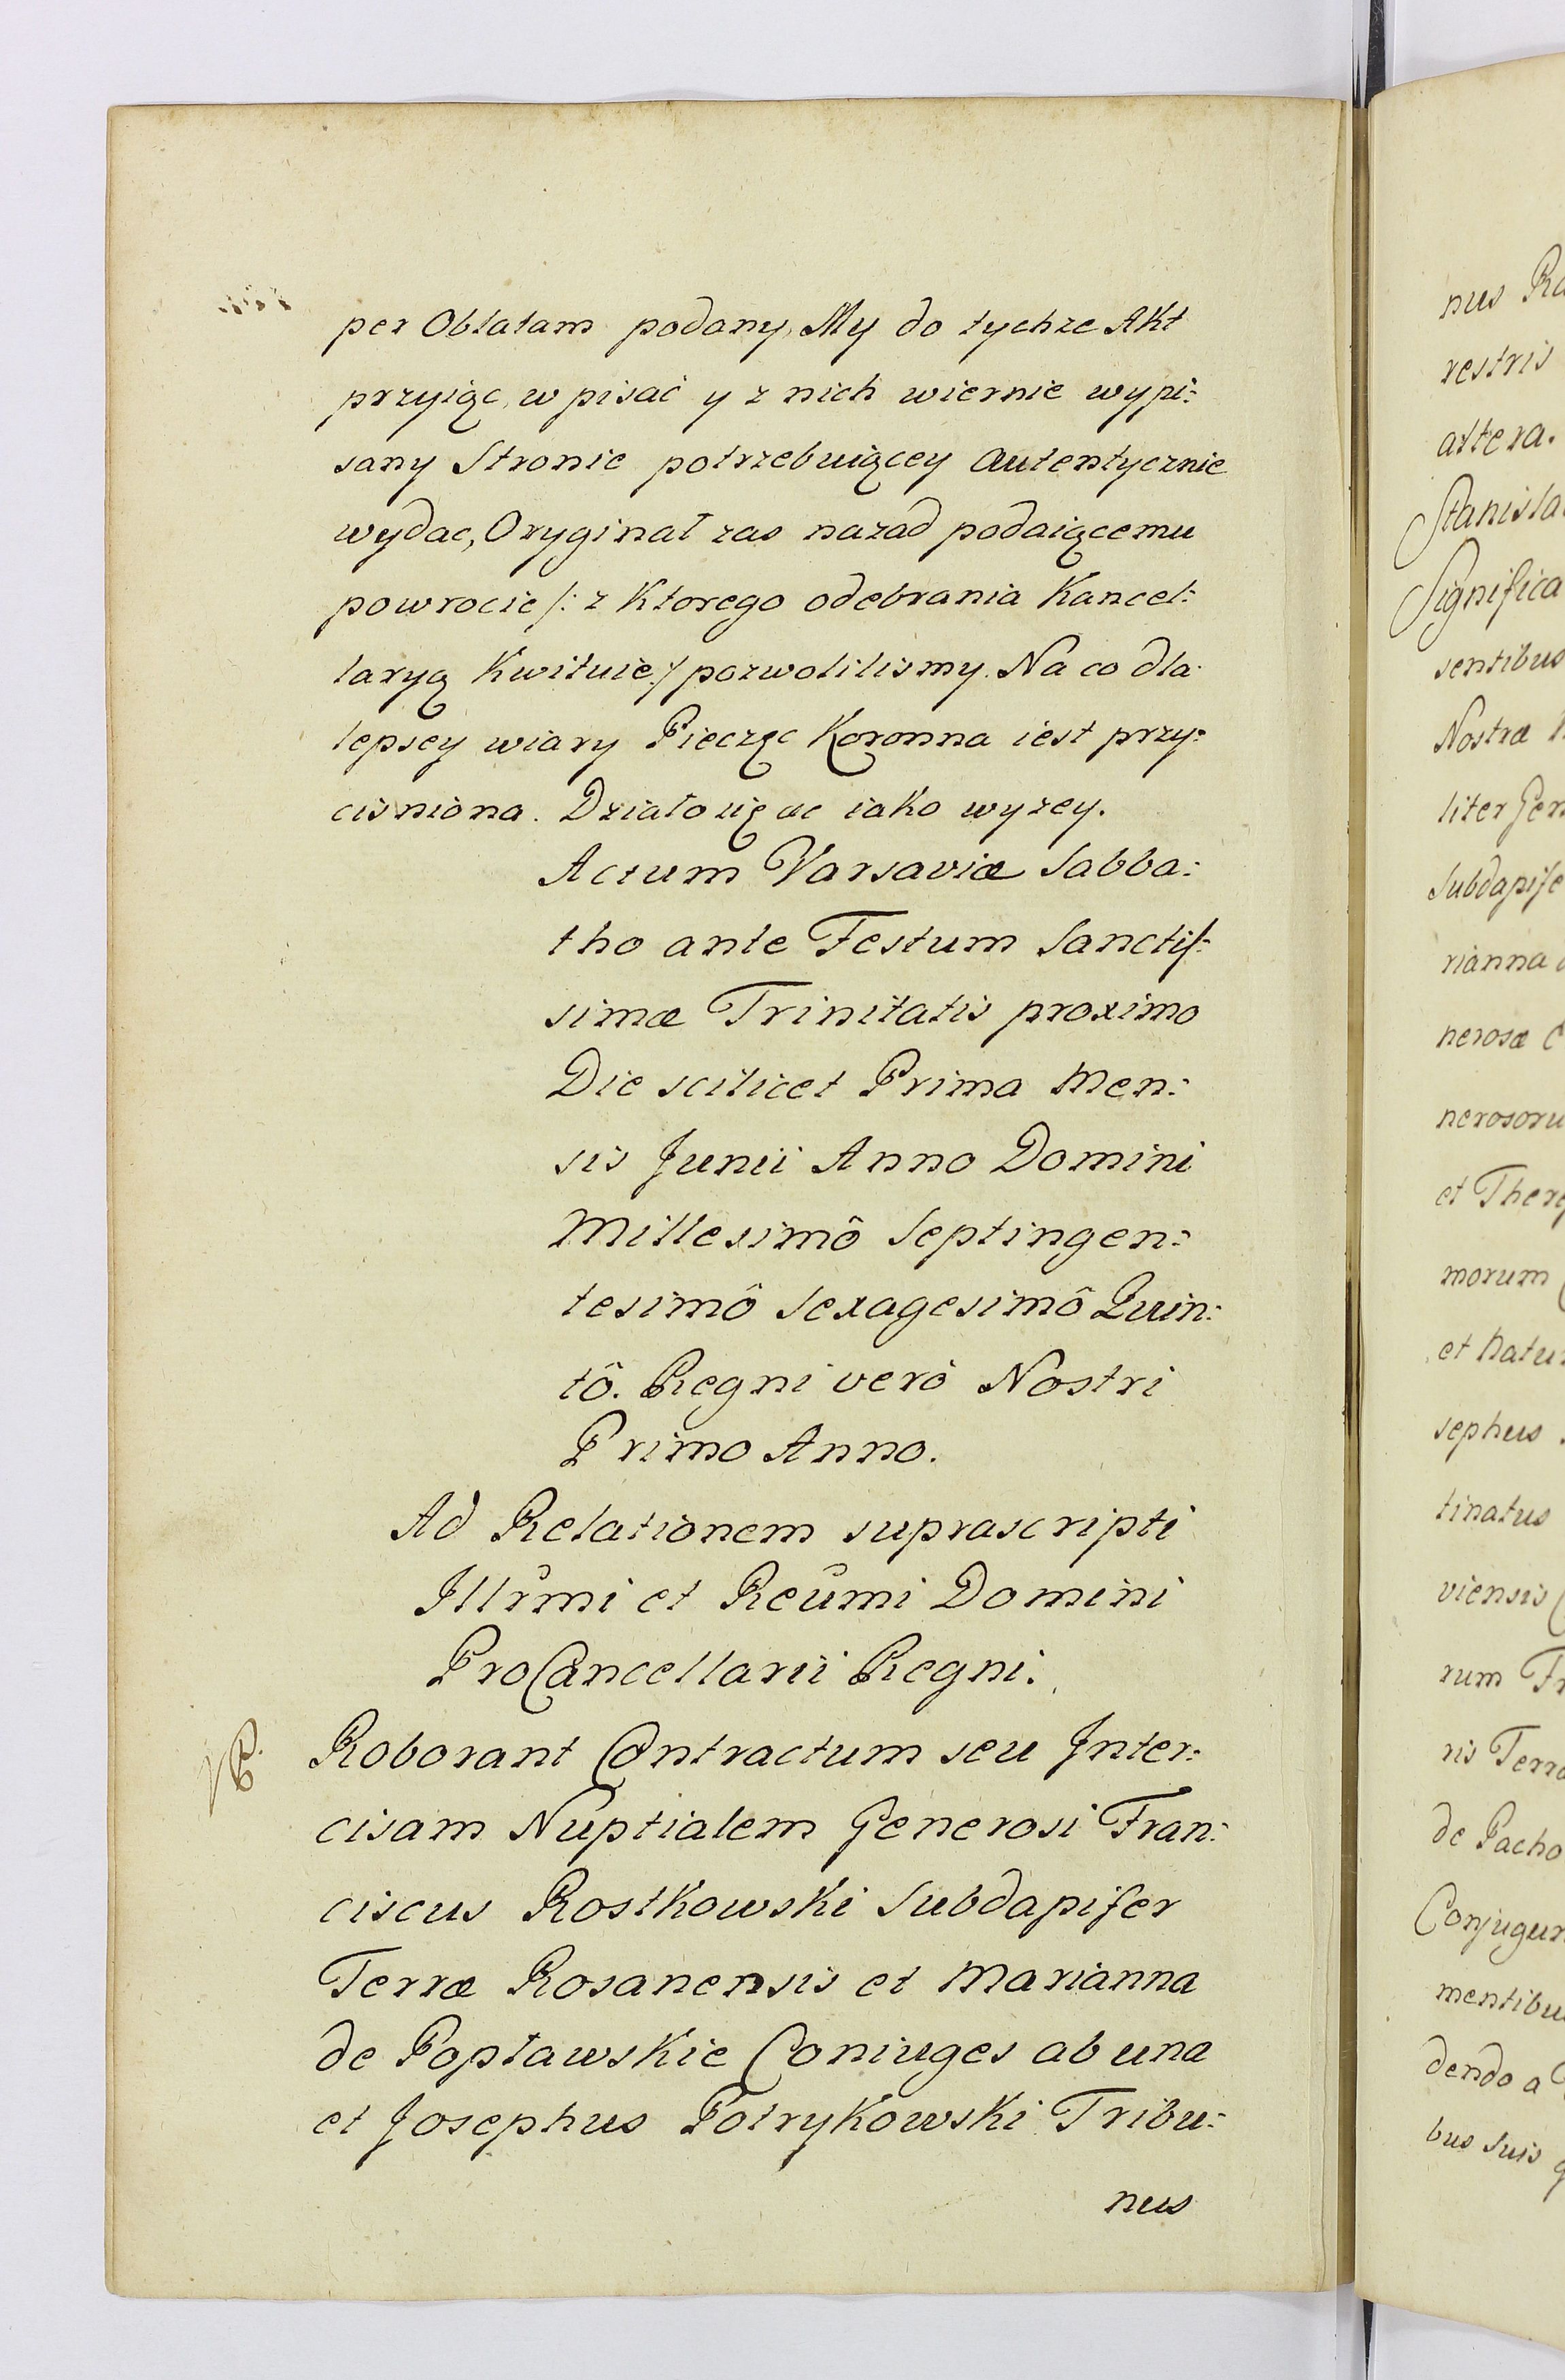 per Oblatam podany, My do tychze Akt
przyiąc, wpisać y z nich wiernie wypi:
sany Stronie potrzebuiącey autentycznie
wydac, Oryginał zas nazad podaiącemu
powrocie /: z Ktorego odebrania Kancel:
laryą Kwituie:/ pozwolilismy. Na co dla
lepsey wiary Pieczęc Koronna iest przy:
cisniona. Działo się ac iako wyzey.
Actum Varsaviæ Sabba:
tho ante Festum Sanctis:
simæ Trinitatis proximo
Die scilicet Prima Men:
sis Junii Anno Domini
Millesimô Septingen:
tesimô Sexagesimô Quin:
tô. Regni verò Nostri
Primo Anno.
Ad Relationem suprascripti
Illrmi et Reûmi Domini
ProCancellarii Regni.
Roborant Contractum seu Inter:
cisam Nuptialem Generosi Fran:
ciscus Rostkowski Subdapifer
Terræ Rosanensis et Marianna
de Popławskie Coniuges ab una
et Josephus Potrykowski Tribu:
nus
nus
restris
altera.
Significa
sentibus
Nostræ
liter Gen
Subdapife
rianna
nerosæ
nerosoru
et There
morum
et Natu
sephus
tinatus
viensis
rum Fr
ris Terra
de Pacho
Conjugum
mentibu
dendo a
bus suis